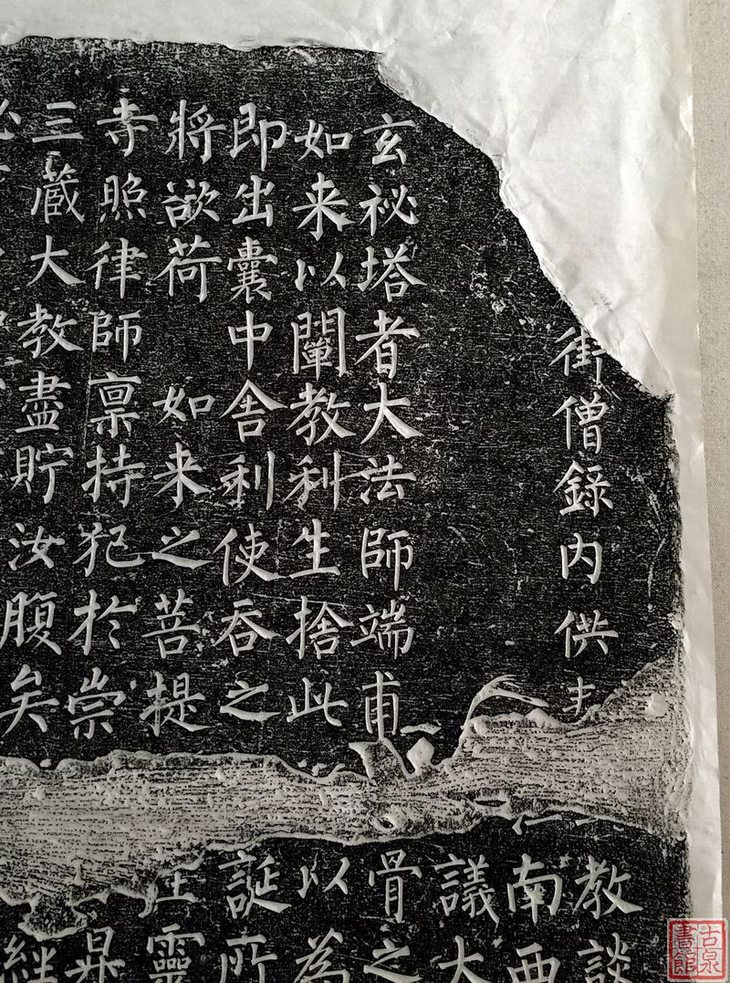 街僧錄內供
教談
南西
議大
玄祕塔者大法師端甫
骨之
如来以闡教利生捨此
以為
即出囊中舍利使吞之
誕所
將欲荷 如来之菩提
靈
寺照律師稟持犯於崇
昇
三藏大教盡貯汝腹矣
經
古泉書館